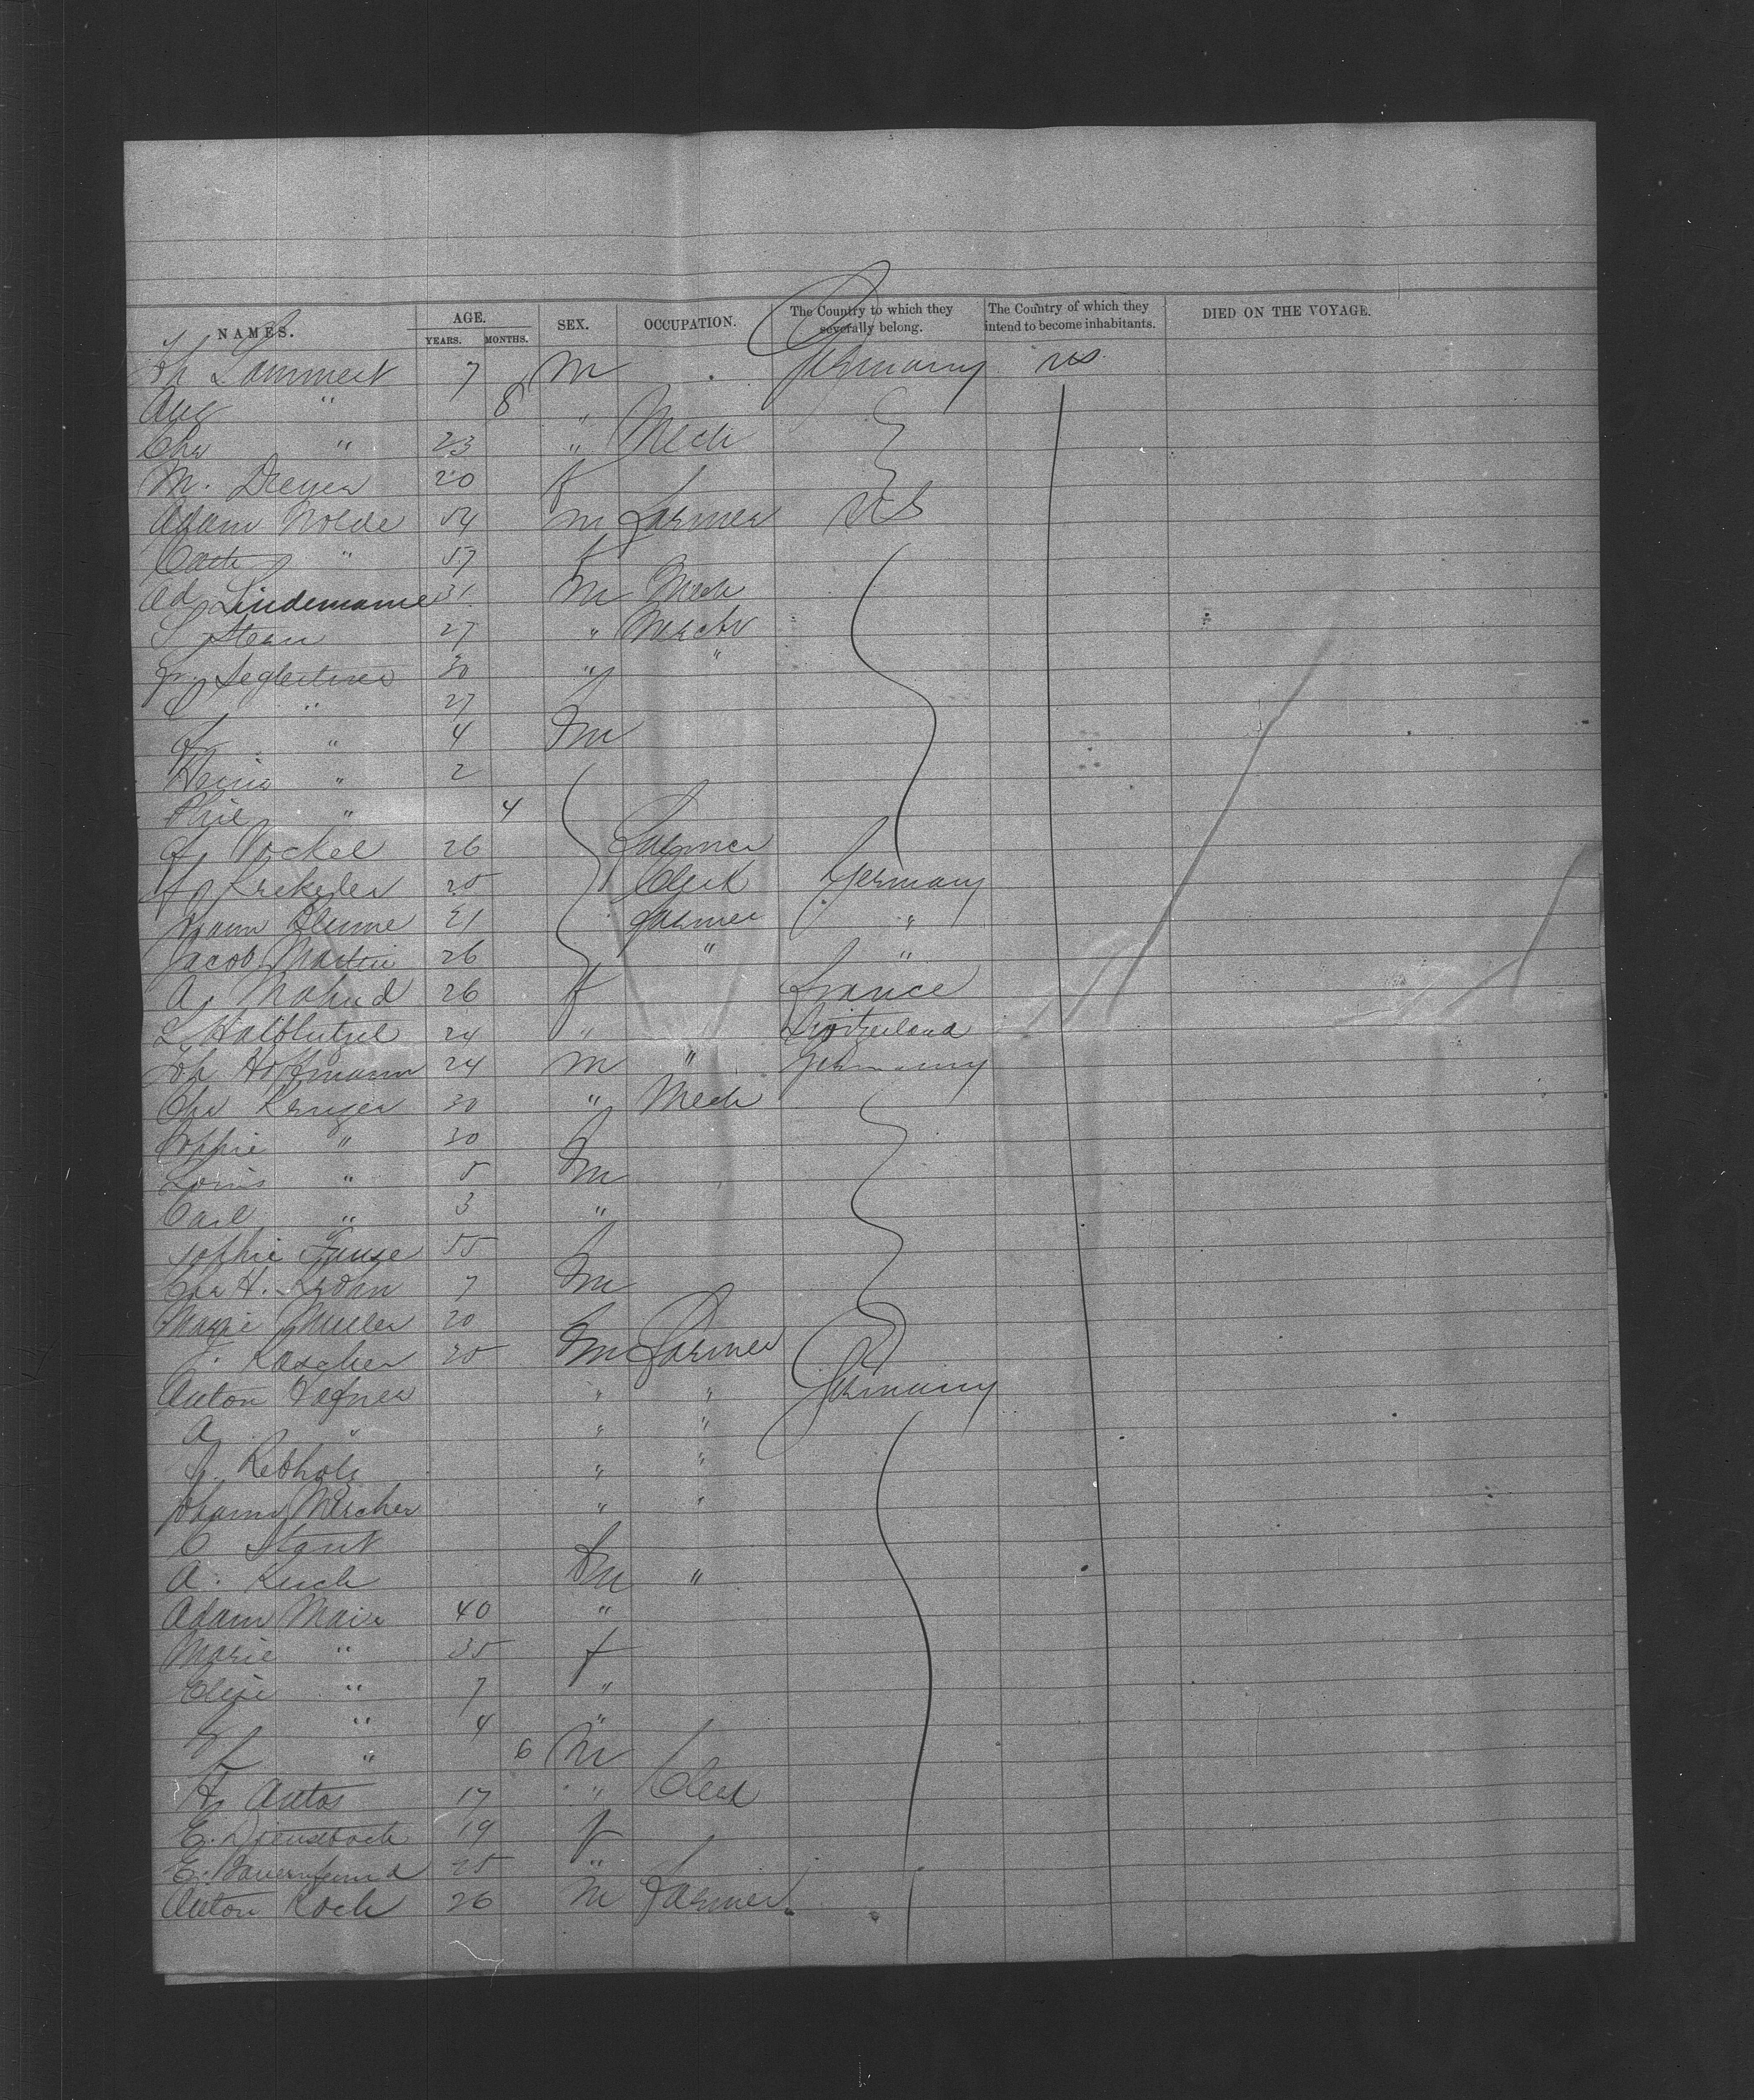 NAMES. AGE. YEARS. MONTHS. SEX. OCCUPATION. The Country to which they severally belong. The Country of which they intend to become inhabitants. DIED ON THE VOYAGE.
Joh Lammert 7 M Germany US
Aug " 8 "
Chr " 23 " Mech
M. Dreyer 20 f
Adam Nolde 54 M Farmer US
Cath " 57 f
Ad. Lindemann 31 M Mech
S Stern 27 " Mercht
30 " "
" 27 f
F " 4 M
Heinr " 2
Phil " 4
F. Vockel 26 Farmer
25 Clerk Germany
Blume 21 Farmer "
Jacob Martin 26 " "
A. 26 f France
24 " Switzerland
Joh Hoffmann 24 M " Germany
Chr Kruger 30 " Mech
Sophie " 30 f
Louis " 5 M
Carl " 3 "
Sophie 55 f
Chr H. Krohn 7 M
Marie Muller 20 f
M Farmer Germany
Anton Hafner " "
A " " "
Rebholz " "
Johann " "
C f
A. M "
Adam Mair 40 "
Marie " 35 f
Elise " 7 "
" 4 "
F " 6 M
H. Antos 17 " Clerk
E. 19 f
E. Bauernfeind 25 "
Anton Koch 26 M Farmer